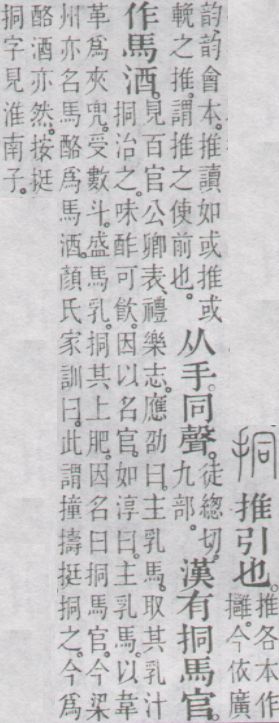 挏 推引也。推各本作
攡。今依廣
韵韵會本。推讀如或推或
輓之推。謂推之使前也。
从手。同聲。徒緫切。
九部。
漢有挏馬官。
作馬酒。見百官公卿表、禮樂志。應劭曰。主乳馬。取其乳汁
挏治之。味酢可飲。因以名官。如淳曰。主乳馬。以韋
革爲夾兜。受數斗。盛馬乳。挏其上肥。因名曰挏馬官。今梁
州亦名馬酪爲馬酒。顏氏家訓曰。此謂撞擣挺挏之。今爲
酪酒亦然。按挺
挏字見淮南子。